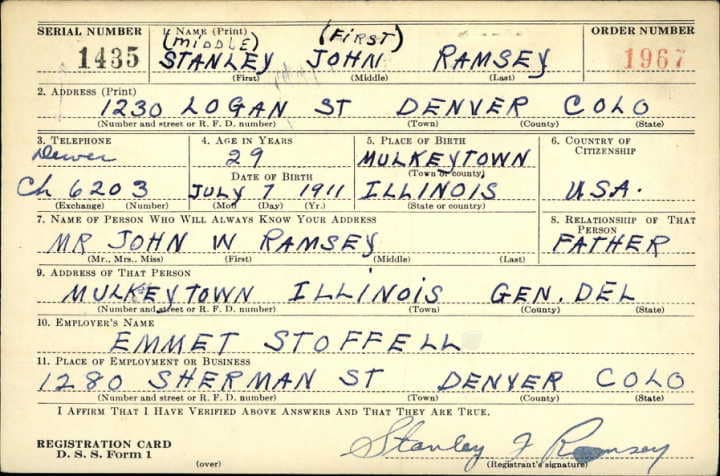 SERIAL NUMBER 1. NAME (Print) ORDER NUMBER
(MIDDLE) (FIRST)
1435 STANLEY JOHN RAMSEY 1967
(First) (Middle) (Last)
2. ADDRESS (Print)
1230 LOGAN ST DENVER COLO
(Number and street or R. F. D. number) (Town) (County) (State)
3. TELEPHONE 4. AGE IN YEARS 5. PLACE OF BIRTH 6. COUNTRY OF CITIZENSHIP
Denver 29 MULKEYTOWN
(Town or county)
DATE OF BIRTH
Ch 6203 JULY 7 1911 ILLINOIS USA.
(Exchange) (Number) (Mo.) (Day) (Yr.) (State or country)
7. NAME OF PERSON WHO WILL ALWAYS KNOW YOUR ADDRESS 8. RELATIONSHIP OF THAT PERSON
MR JOHN W RAMSEY FATHER
(Mr., Mrs., Miss) (First) (Middle) (Last)
9. ADDRESS OF THAT PERSON
MULKEYTOWN ILLINOIS GEN. DEL
(Number and street or R. F. D. number) (Town) (County) (State)
10. EMPLOYER'S NAME
EMMET STOFFELL
11. PLACE OF EMPLOYMENT OR BUSINESS
1280 SHERMAN ST DENVER COLO
(Number and street or R. F. D. number) (Town) (County) (State)
I AFFIRM THAT I HAVE VERIFIED ABOVE ANSWERS AND THAT THEY ARE TRUE.
REGISTRATION CARD Stanley J Ramsey
D. S. S. Form 1 (over) (Registrant's signature)